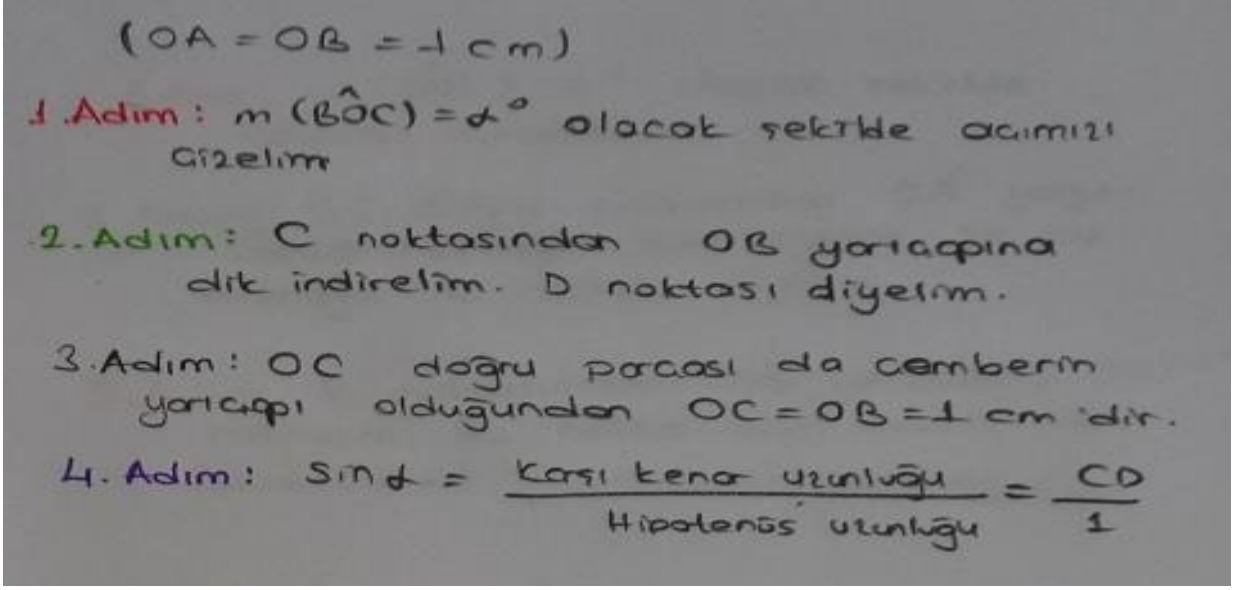 (OA = OB = 1 cm)
1.Adım: m (BÔC) = α° olacak şekilde açımızı
çizelim
2.Adım: C noktasından OB yarıçapına
dik indirelim. D noktası diyelim.
3.Adım: OC doğru parçası da çemberin
yarıçapı olduğundan OC = OB = 1 cm 'dir.
4.Adım: Sin α = Karşı kenar uzunluğu / Hipotenüs uzunluğu = CD / 1